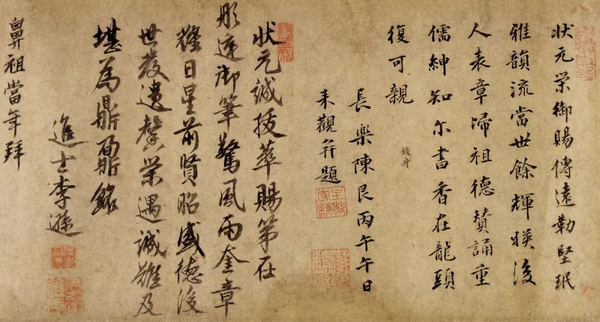 狀元榮御賜傳遠勒堅珉
雅韻流當世餘輝暎後
人表章歸祖德賛誦重
儒紳知尔書香在龍頭
復可親
長樂陳艮丙午午日
來觀并題
狀元誠拔萃賜第在
彤逵御筆驚風雨奎章
耀日星前賢昭盛德後
世發遺馨榮遇誠難及
堪為鼎鼐銘
進士李
鼻祖當年拜